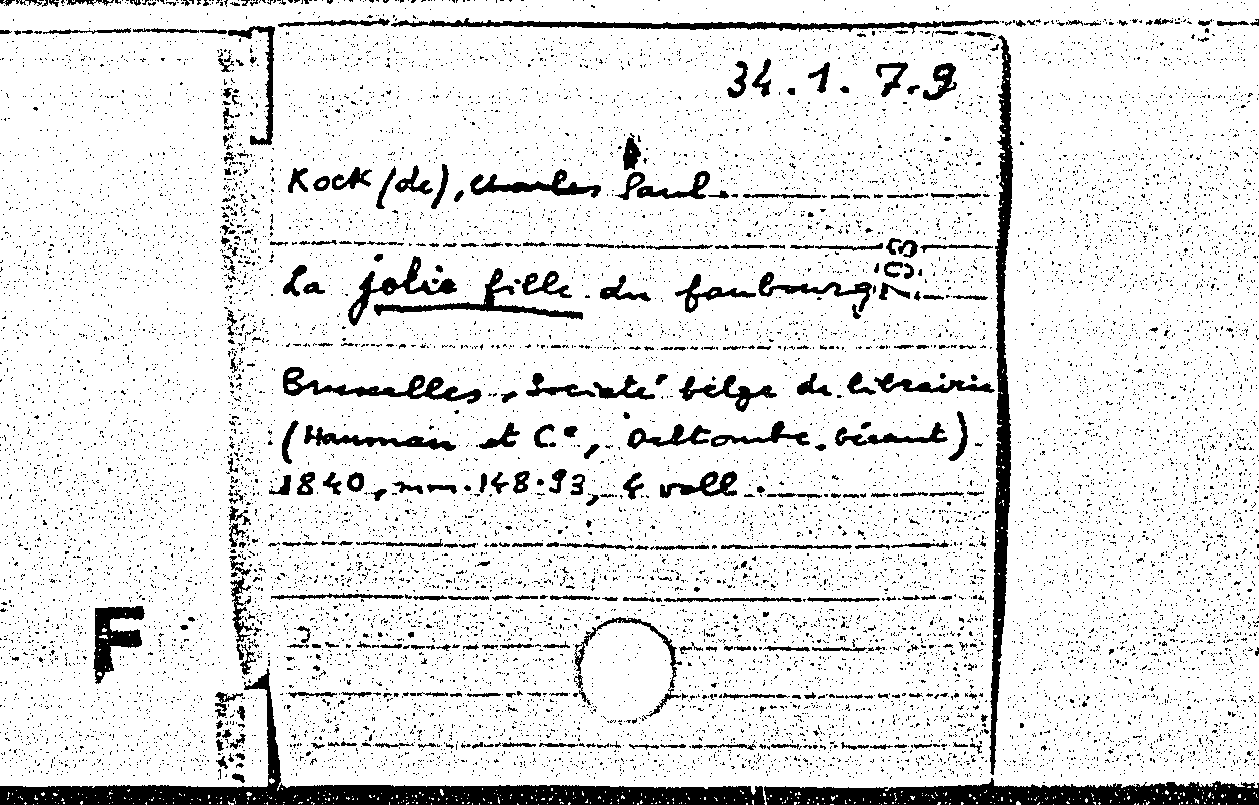 34.1.7.9
Kock (de), Charles Paul.
La jolie fille du faubourg
703
Bruxelles, Societé belge de librairie
(Hauman et C.e, Deltombe, Gérant).
1840, mm. 148.93, 4 voll.
F